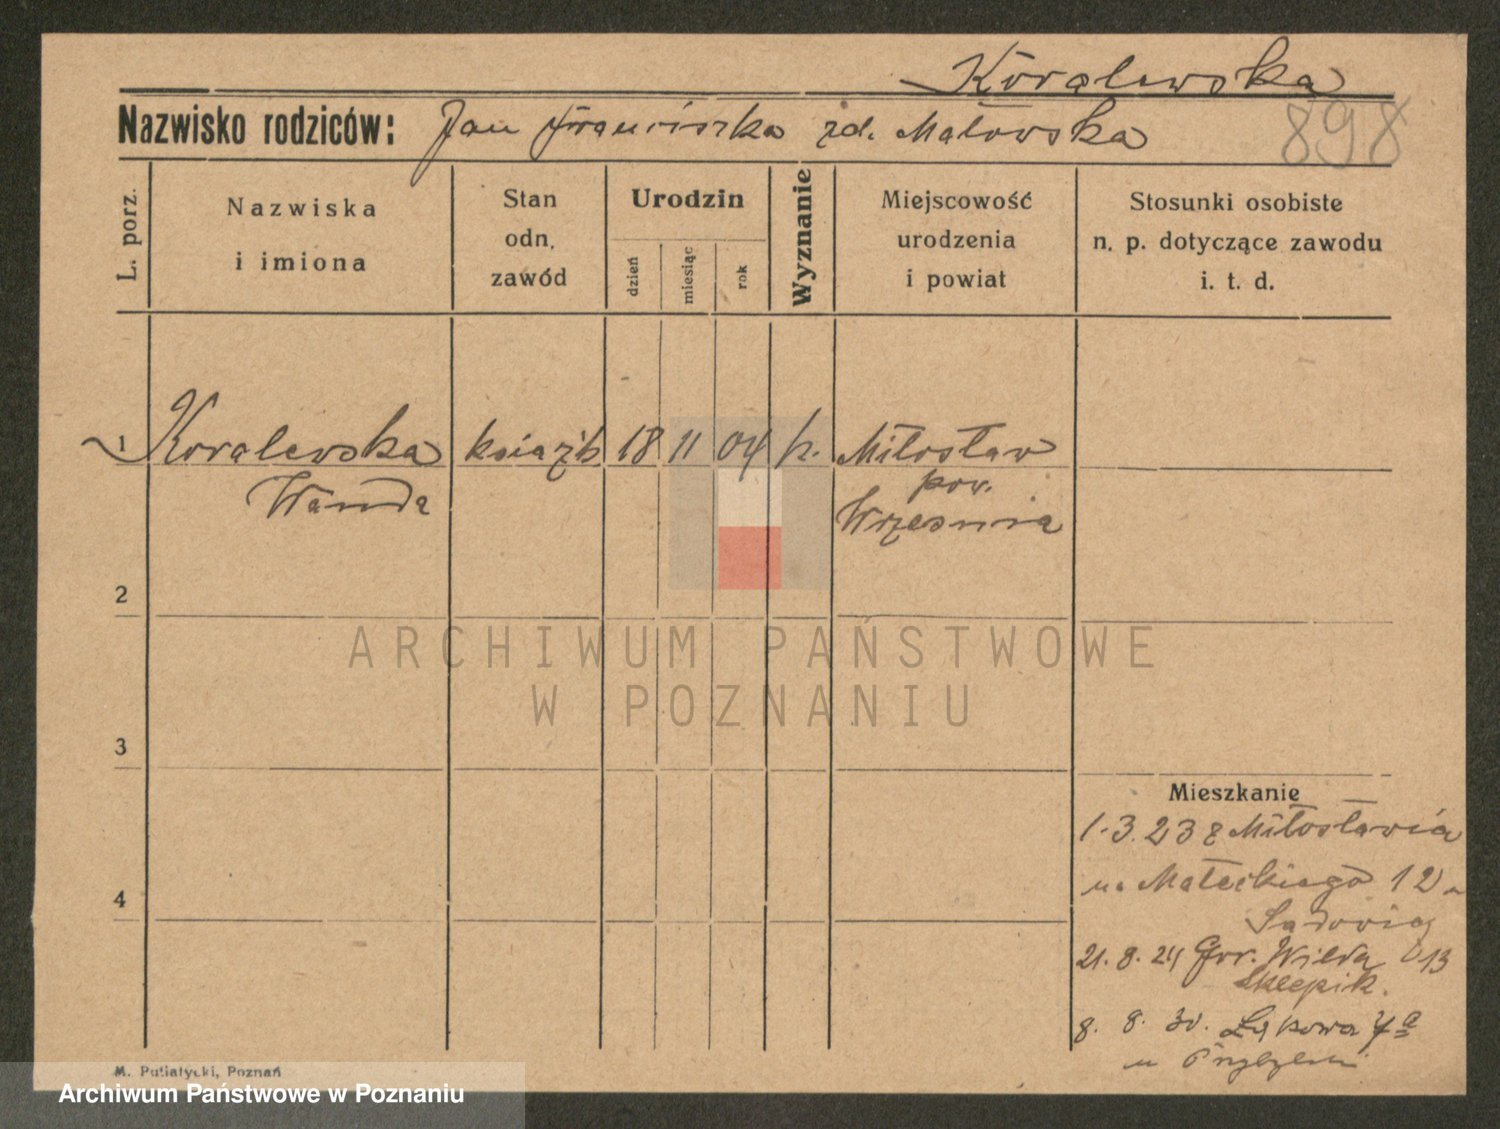 Koralewska
Nazwisko rodziców: Jan Franciszka zd. Małowska
898
L. porz.
Nazwiska
i imiona
Stan
odn.
zawód
Urodzin
dzień
miesiąc
rok
Wyznanie
Miejscowość
urodzenia
i powiat
Stosunki osobiste
n. p. dotyczące zawodu
i. t. d.
1 Koralewska książk 18 11 04 k. Miłosław
Wanda
pow.
Września
2
ARCHIWUM PAŃSTWOWE
W POZNANIU
3
Mieszkanie
1.3.23 z Miłosławia
u. Małeckiego 12
21.8.24 Gór. Wilda 13
Sklepik.
8. 8. 30. Łąkowa 7a
u
4
M. Putiatycki, Poznań
Archiwum Państwowe w Poznaniu